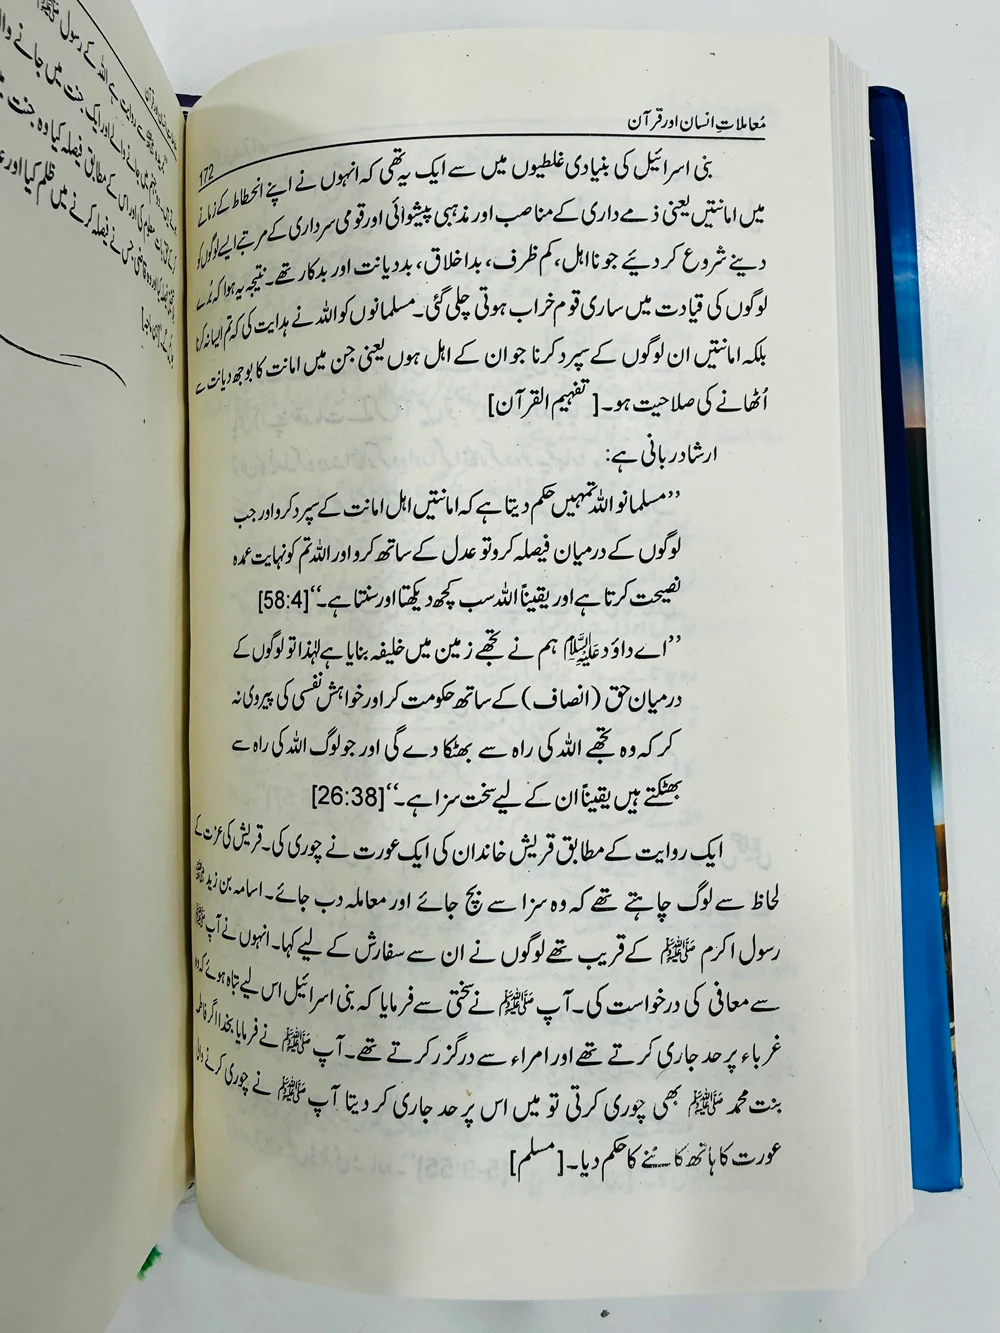 معاملاتِ انسان اور قرآن
172
بنی اسرائیل کی بنیادی غلطیوں میں سے ایک یہ تھی کہ انہوں نے اپنے انحطاط کے زمانے
میں امانتیں یعنی ذمے داری کے مناصب اور مذہبی پیشوائی اور قومی سرداری کے مرتبے ایسے لوگوں کو
دینے شروع کر دیئے جو نااہل، کم ظرف، بداخلاق، بددیانت اور بدکار تھے۔ نتیجہ یہ ہوا کہ بُرے
لوگوں کی قیادت میں ساری قوم خراب ہوتی چلی گئی۔ مسلمانوں کو اللہ نے ہدایت کی کہ تم ایسا نہ کرنا
بلکہ امانتیں ان لوگوں کے سپرد کرنا جو ان کے اہل ہوں یعنی جن میں امانت کا بوجھ دیانت سے
اُٹھانے کی صلاحیت ہو۔ [تفہیم القرآن]
ارشاد ربانی ہے:
’’مسلمانو اللہ تمہیں حکم دیتا ہے کہ امانتیں اہل امانت کے سپرد کرو اور جب
لوگوں کے درمیان فیصلہ کرو تو عدل کے ساتھ کرو اور اللہ تم کو نہایت عمدہ
نصیحت کرتا ہے اور یقیناً اللہ سب کچھ دیکھتا اور سنتا ہے۔‘‘ [58:4]
’’اے داؤد علیہ السلام ہم نے تجھے زمین میں خلیفہ بنایا ہے لہٰذا تو لوگوں کے
درمیان حق (انصاف) کے ساتھ حکومت کر اور خواہش نفسی کی پیروی نہ
کر کہ وہ تجھے اللہ کی راہ سے بھٹکا دے گی اور جو لوگ اللہ کی راہ سے
بھٹکتے ہیں یقیناً ان کے لیے سخت سزا ہے۔‘‘ [26:38]
ایک روایت کے مطابق قریش خاندان کی ایک عورت نے چوری کی۔ قریش کی عزت کے
لحاظ سے لوگ چاہتے تھے کہ وہ سزا سے بچ جائے اور معاملہ دب جائے۔ اسامہ بن زید
رسول اکرم ﷺ کے قریب تھے لوگوں نے ان سے سفارش کے لیے کہا۔ انہوں نے آپ ﷺ
سے معافی کی درخواست کی۔ آپ ﷺ نے سختی سے فرمایا کہ بنی اسرائیل اس لیے تباہ ہوئے کہ وہ
غرباء پر حد جاری کرتے تھے اور امراء سے درگزر کرتے تھے۔ آپ ﷺ نے فرمایا بخدا اگر فاطمہ
بنت محمد ﷺ بھی چوری کرتی تو میں اس پر حد جاری کر دیتا آپ ﷺ نے چوری کرنے والی
عورت کا ہاتھ کاٹنے کا حکم دیا۔ [مسلم]